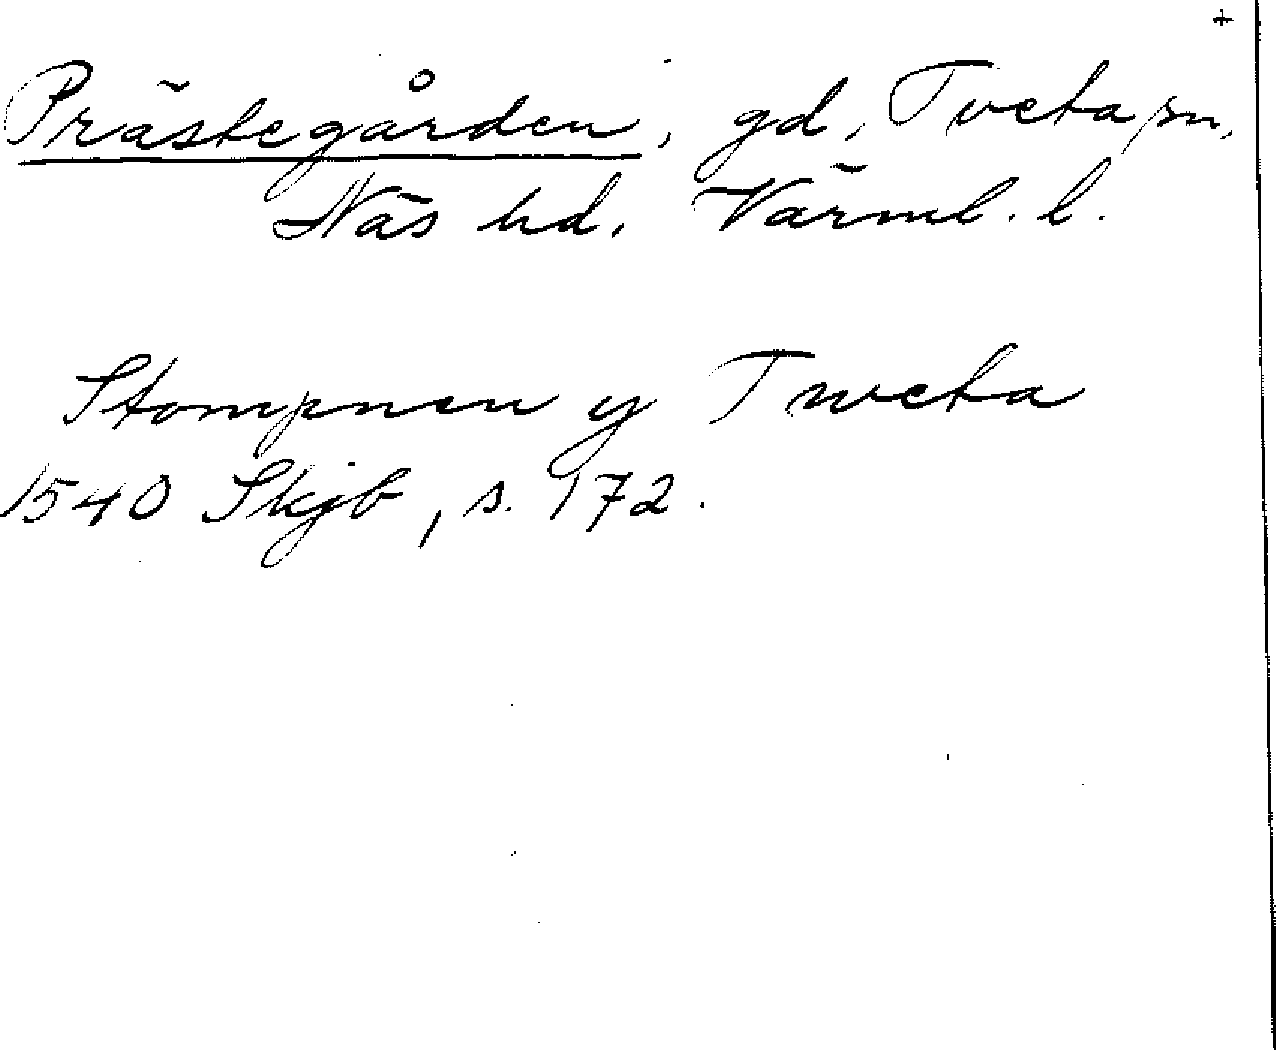 +
Prästegården, gd, Tveta sn,
Näs hd, Värml. l.
Stompnen y Tweta
1540 Skjb, s. 172.